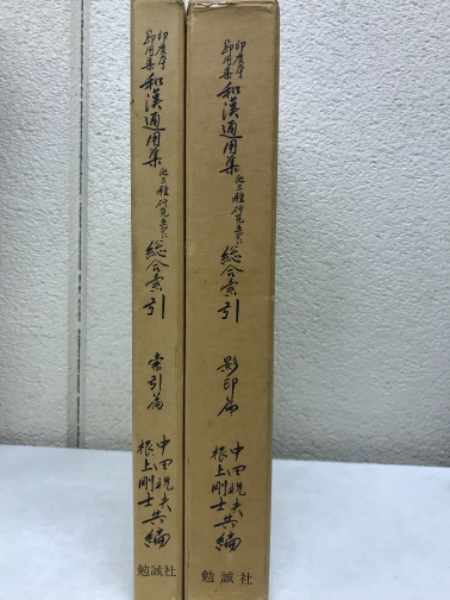 印度本
節用集
和漢通用集他三種研究並びに総合索引
影印篇
中田祝夫
根上剛士
共編
勉誠社
印度本
節用集
和漢通用集他三種研究並びに総合索引
索引篇
中田祝夫
根上剛士
共編
勉誠社